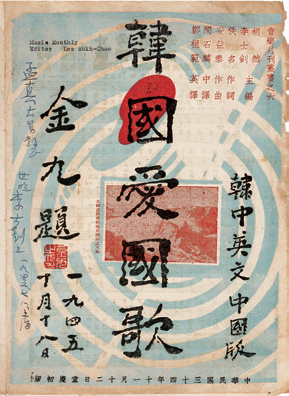 Music Monthly
Editor Lee Shih-Chao
音樂月刊叢書之六
胡然
李士釗
主編
佚名作詞
安益泰作曲
閔石麟中譯
範英譯
韓國愛國歌
韓中英文中國版
金九題
一九四五
十月十八日
中華民國三十四年十一月十二日重慶初版